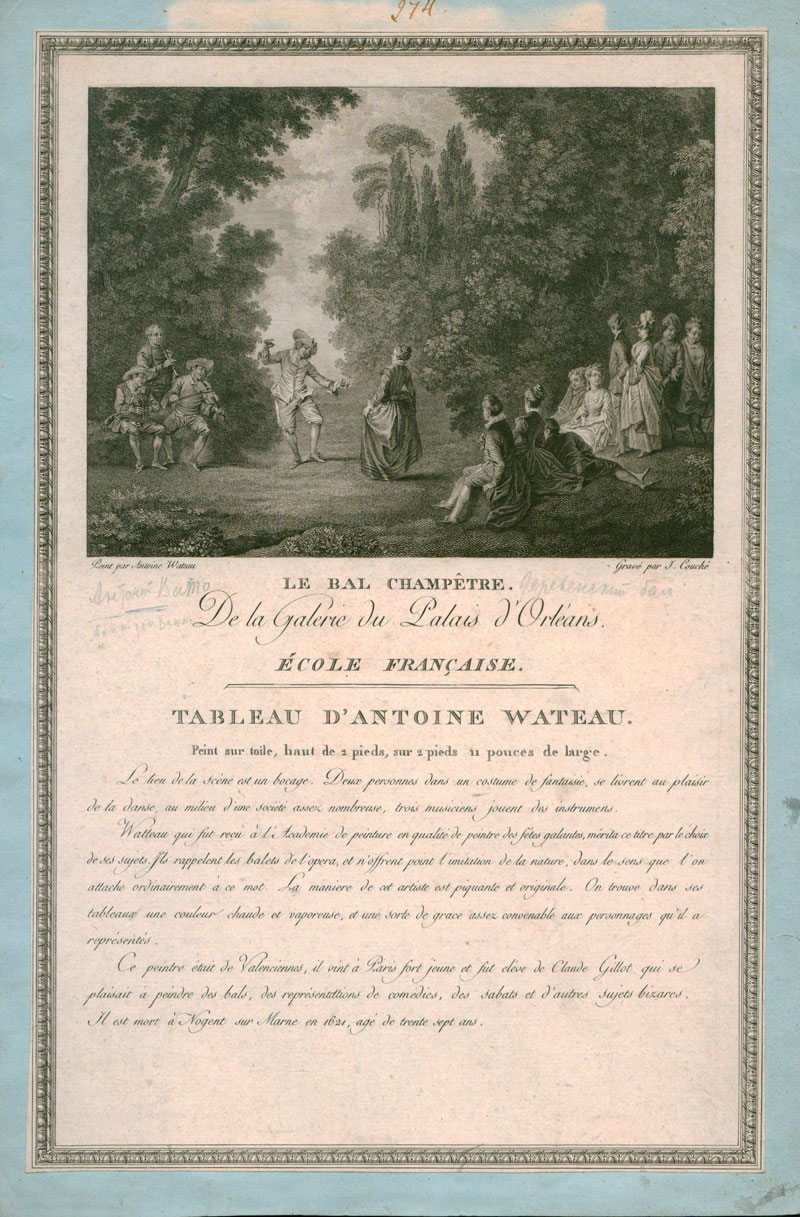 274
Peint par Antoine Wateau
Gravé par J. Couché
LE BAL CHAMPÊTRE.
Антуан Вато
Деревенский бал
De la Galerie du Palais d'Orléans.
ÉCOLE FRANÇAISE.
TABLEAU D'ANTOINE WATEAU.
Peint sur toile, haut de 2 pieds, sur 2 pieds 11 pouces de large.
Le lieu de la scène est un bocage. Deux personnes dans un costume de fantaisie, se livrent au plaisir
de la danse, au milieu d'une société assez nombreuse, trois musiciens jouent des instrumens.
Watteau qui fut reçu à l'Academie de peinture en qualité de peintre des fetes galantes, mérita ce titre par le choix
de ses sujets. Ils rappelent les balets de l'opera, et n'offrent point l'imitation de la nature, dans le sens que l'on
attache ordinairement à ce mot. La maniere de cet artiste est piquante et originale. On trouve dans ses
tableaux une couleur chaude et vaporeuse, et une sorte de grace assez convenable aux personnages qu'il a
représentés.
Ce peintre était de Valenciennes, il vint à Paris fort jeune et fut elève de Claude Gillot, qui se
plaisait à peindre des bals, des représentattions de comédies, des sabats et d'autres sujets bizares.
Il est mort à Nogent sur Marne en 1621, agé de trente sept ans.